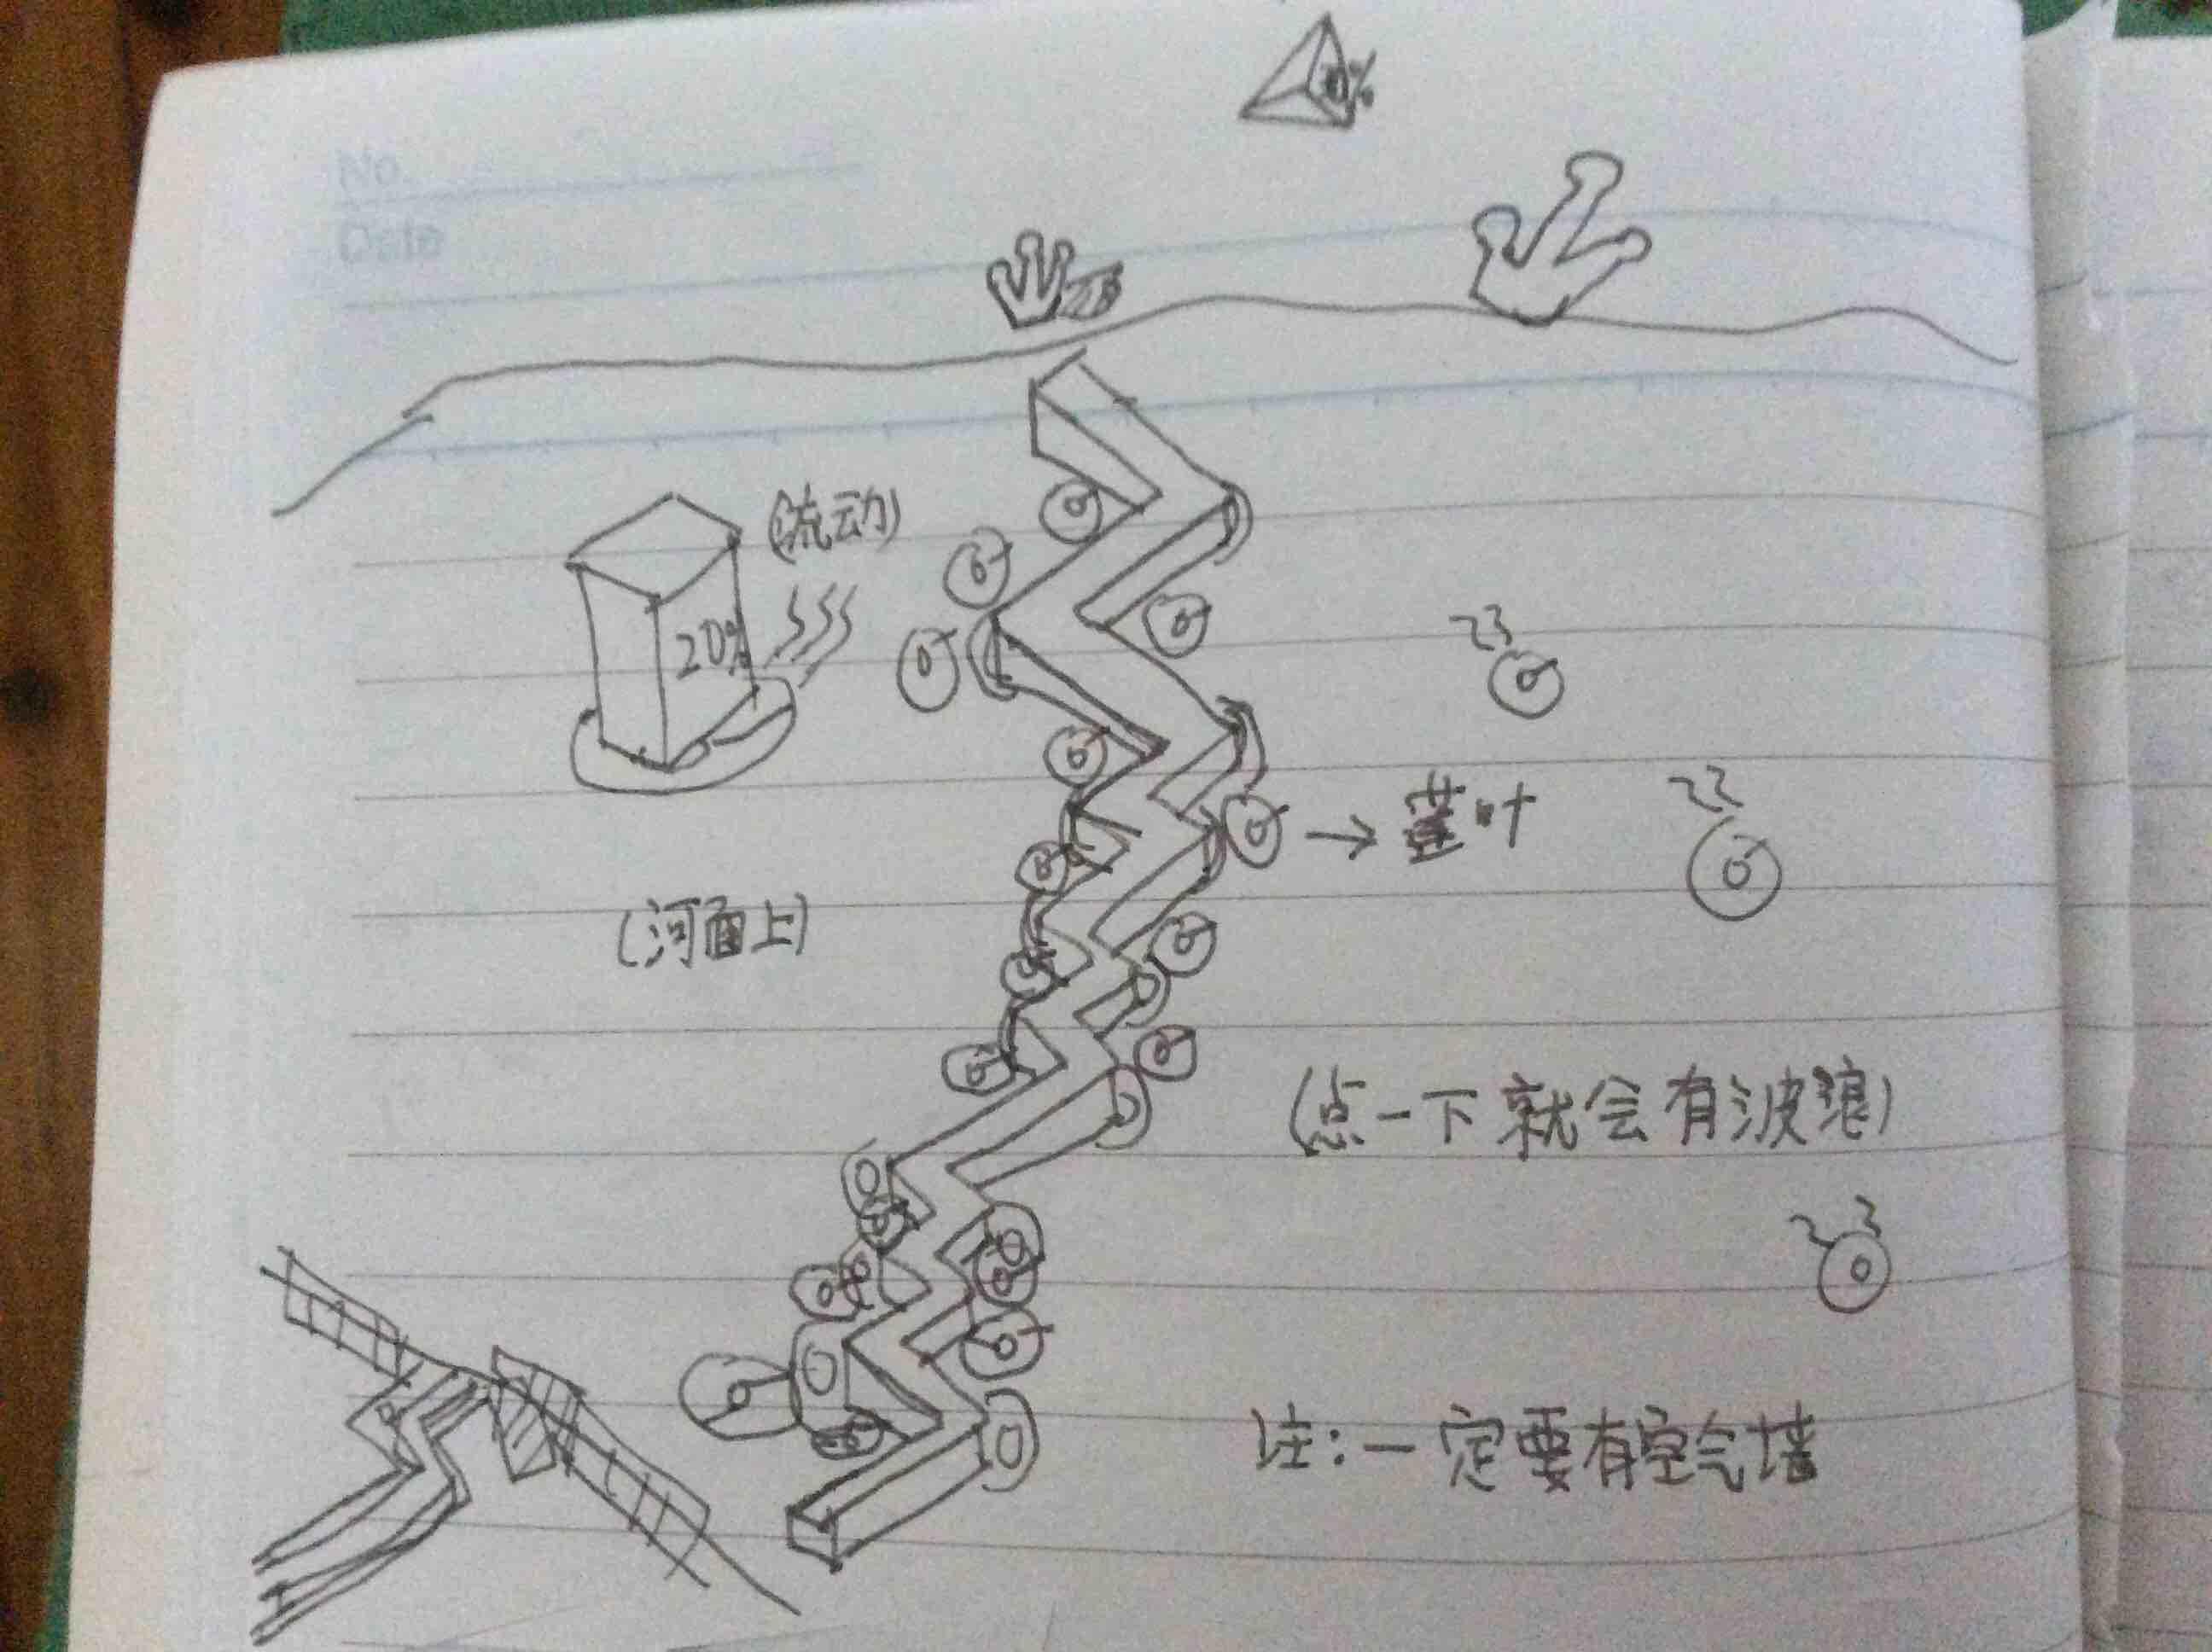 No.
Date
(流动)
20%
→ 莲叶
(河面上)
(点一下就会有波浪)
注：一定要有空气墙